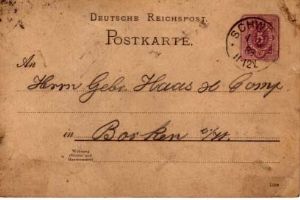 DEUTSCHE REICHSPOST.
POSTKARTE.
SCHW
5
An
Herrn Gebr. Haas & Comp
in Borken i/W.
Wohnung
(Straße und
Hausnummer)